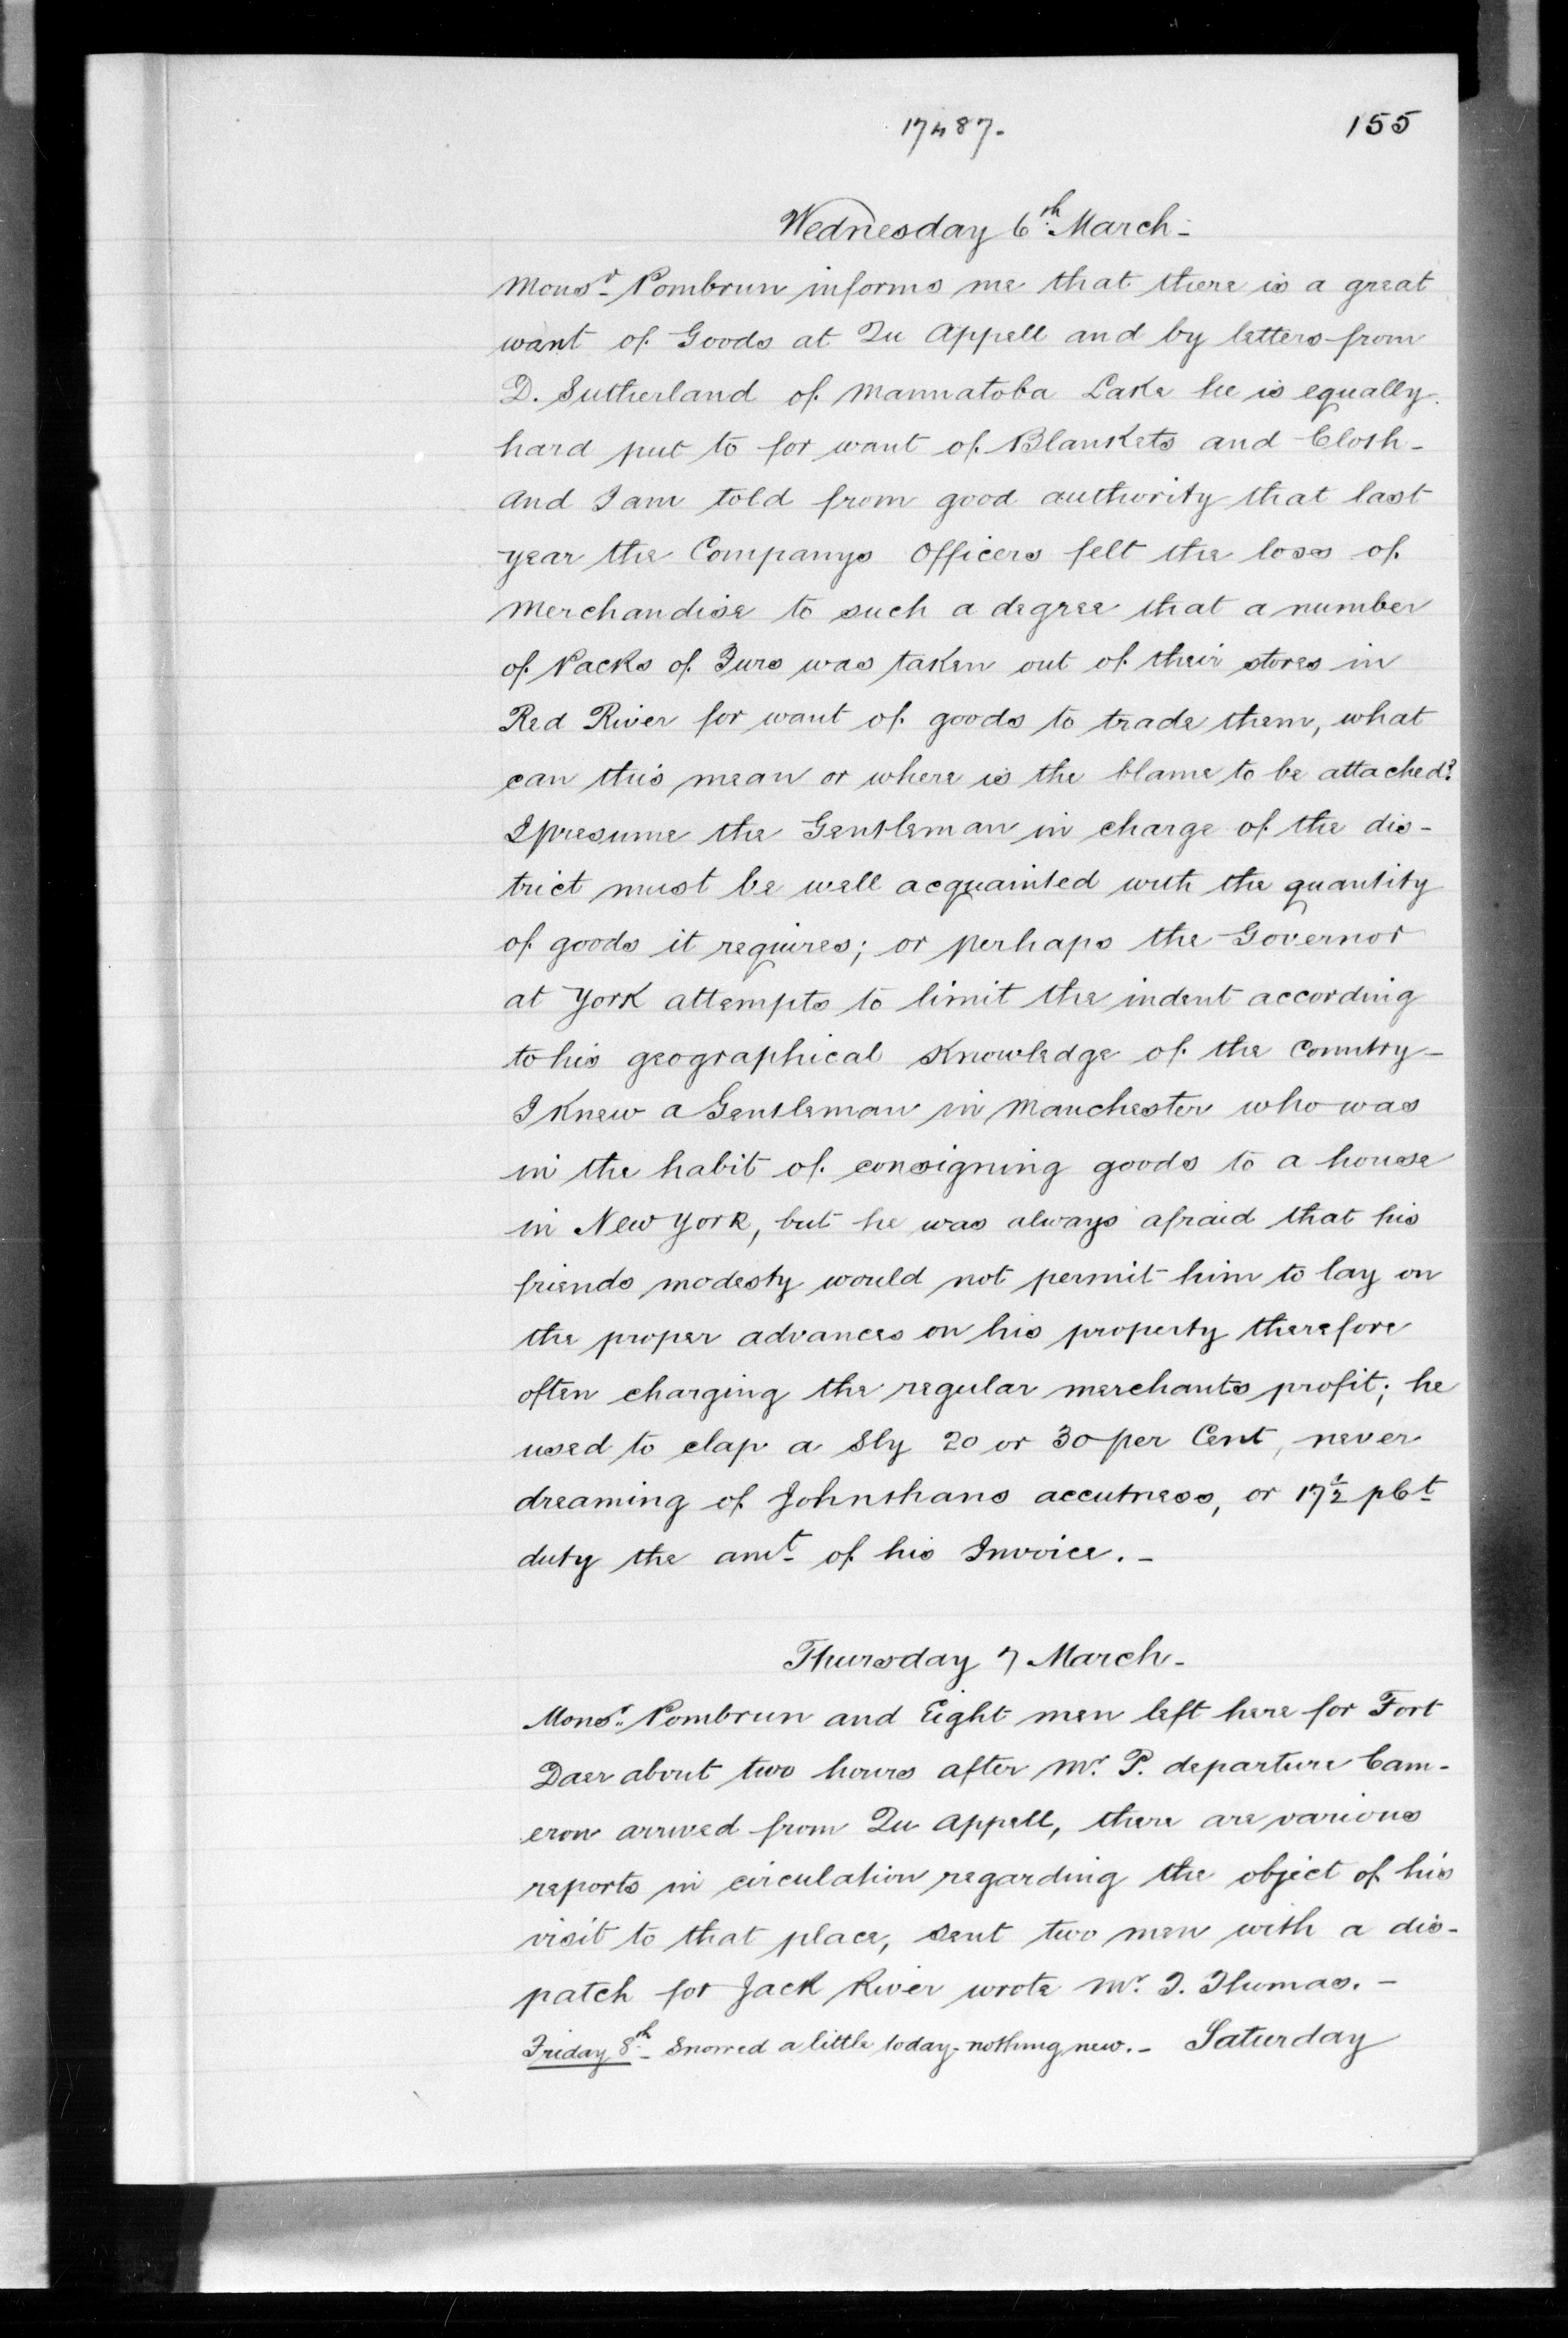 17487.
155
Wednesday 6th March-
Monsr Pombrun informs me that there is a great
want of Goods at Qu Appell and by letters from
D. Sutherland of Mannatoba Lake he is equally
hard put to for want of Blankets and Cloth-
And I am told from good authority that last
year the Companys Officers felt the loss of
Merchandise to such a degree that a number
of Packs of Furs was taken out of their stores in
Red River for want of goods to trade them, what
can this mean or where is the blame to be attached?
I presume the Gentleman in charge of the dis-
trict must be well acquainted with the quantity
of goods it requires; or perhaps the Governor
at York attempts to limit the indent according
to his geographical Knowledge of the Country-
I Knew a Gentleman in Manchester who was
in the habit of consigning goods to a house
in New York, but he was always afraid that his
friends modesty would not permit him to lay on
the proper advances on his property therefore
often charging the regular merchants profit; he
used to clap a Sly 20 or 30 per Cent, never
dreaming of Johnthans accutness, or 17½ pCt
duty the amt of his Invoice.-
Thursday 7 March-
Monsr. Pombrun and Eight men left here for Fort
Daer about two hours after Mr. P. departure Cam-
eron arrived from Qu Appell, there are various
reports in circulation regarding the object of his
visit to that place, sent two men with a dis-
patch for Jack River wrote Mr. T. Thomas.-
Friday 8th- Snowed a little today- nothing new.- Saturday